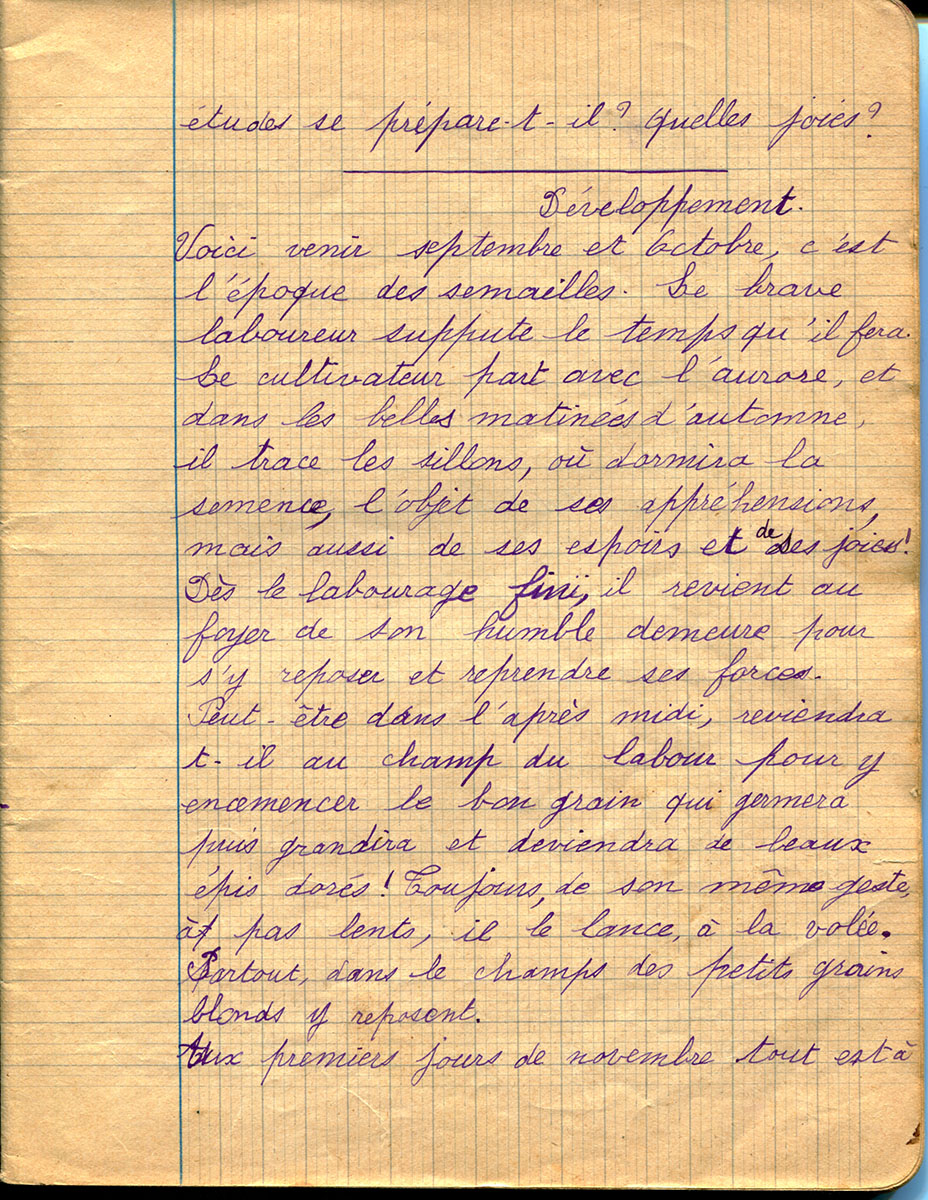 études se prépare-t-il? quelles joies?
Développement.
Voici venir septembre et Octobre, c'est
l'époque des semailles. Le brave
laboureur suppute le temps qu'il fera.
Le cultivateur part avec l'aurore, et
dans les belles matinées d'automne,
il trace les sillons, où dormira la
semence, l'objet de ses appréhensions,
mais aussi de ses espoirs et de ses joies!
Dès le labourage fini, il revient au
foyer de son humble demeure pour
s'y reposer et reprendre ses forces.
Peut-être dans l'après midi, reviendra
t-il au champ du labour pour y
encemencer le bon grain qui germera
puis grandira et deviendra de beaux
épis dorés! Toujours, de son même geste,
à pas lents, il le lance, à la volée.
Partout, dans le champs des petits grains
blonds y reposent.
Aux premiers jours de novembre tout est à